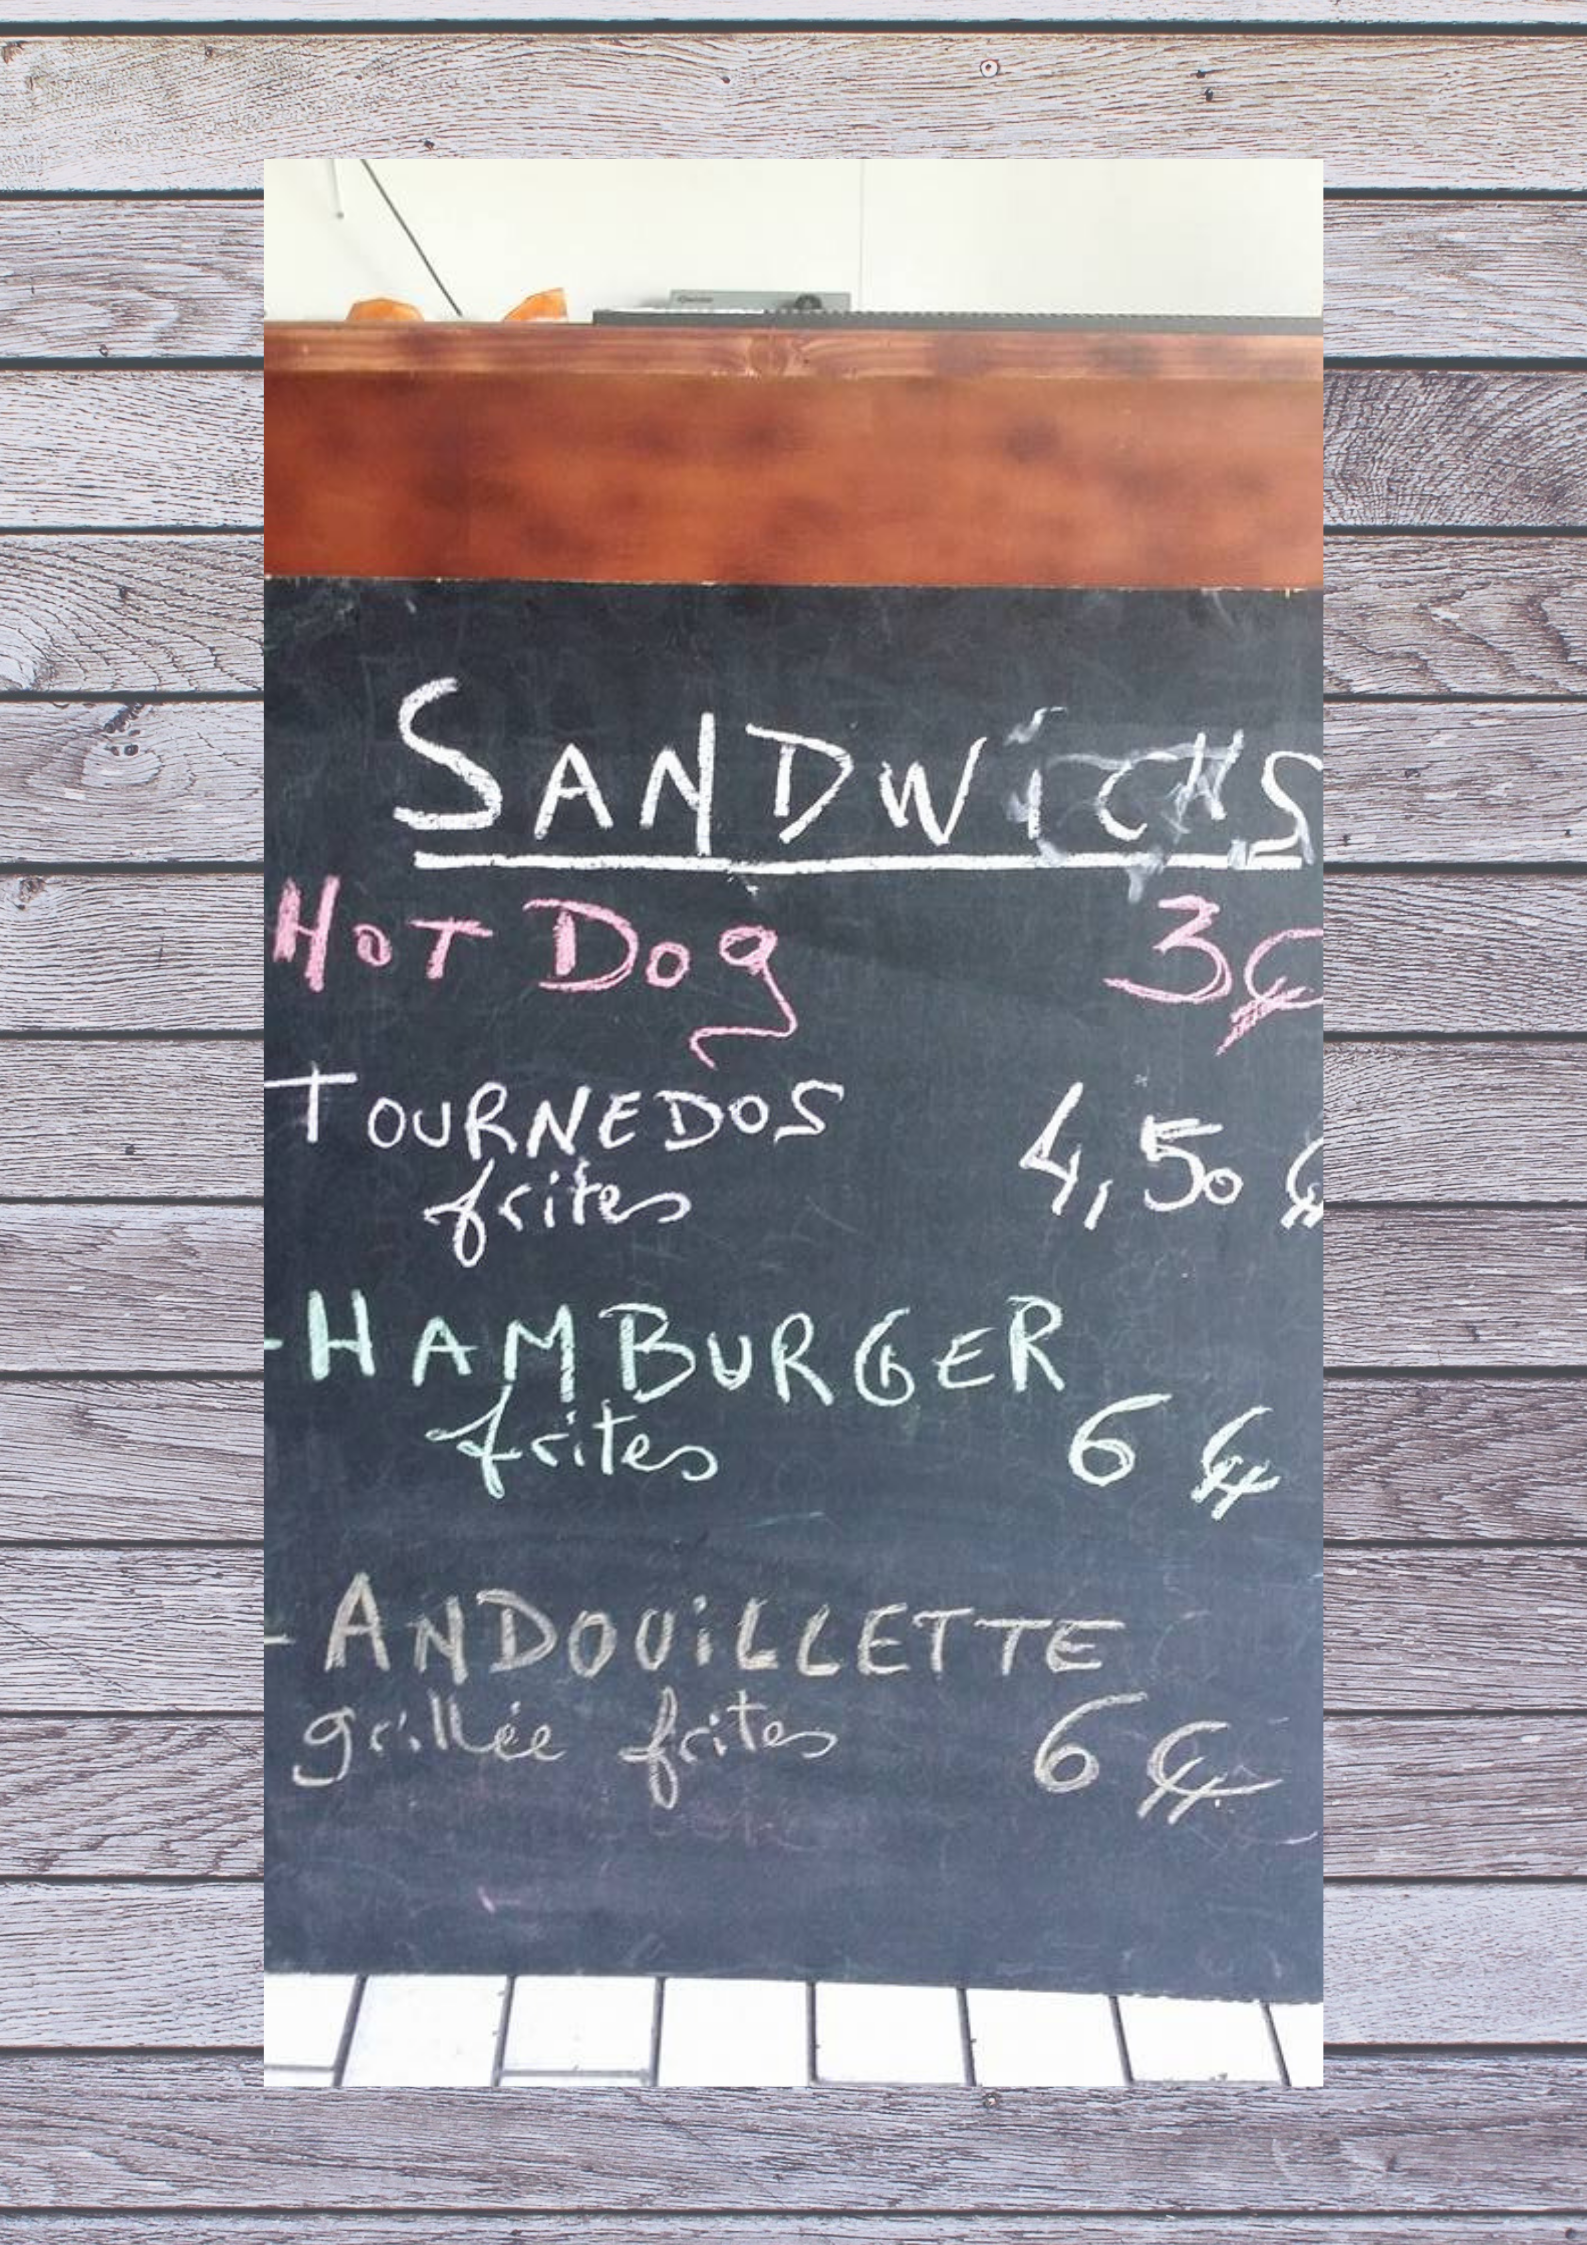 SANDWiCHS
HOT DOg 3€
TOURNEDOS
frites 4,50 €
-HAMBURGER
frites 6 €
-ANDOUiLLETTE
grillée frites 6 €